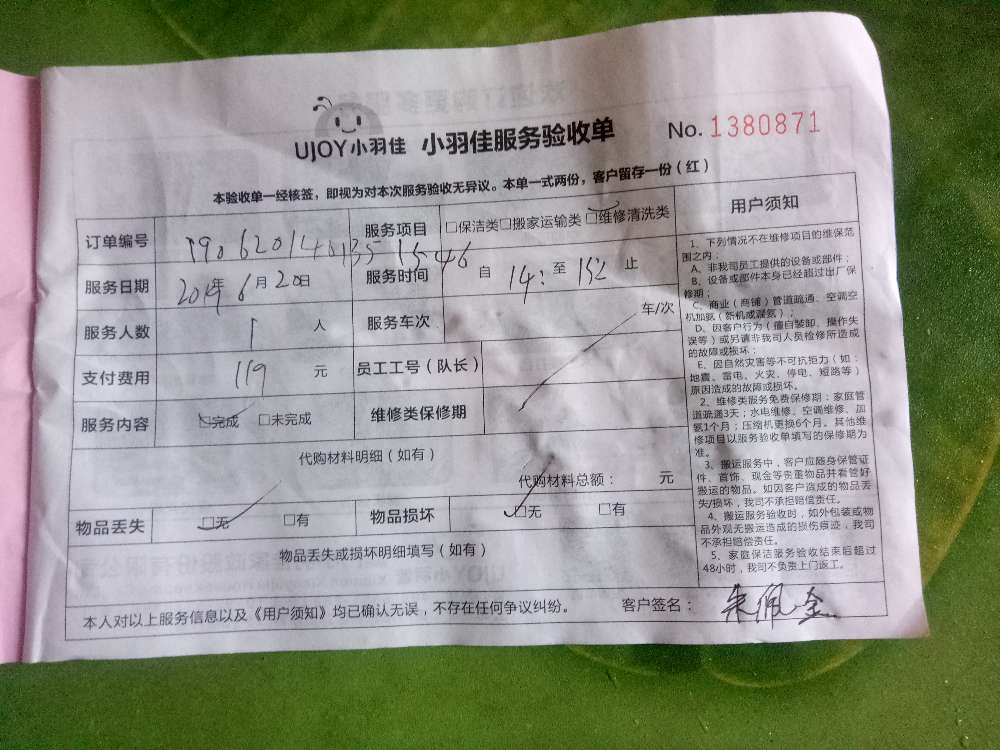 UJOY小羽佳 小羽佳服务验收单 No. 1380871
本验收单一经核签，即视为对本次服务验收无异议。本单一式两份，客户留存一份（红）
订单编号 服务项目 □保洁类□搬家运输类□维修清洗类
服务日期 2019年6月20日 服务时间 自 14: 至 止
服务人数 1 人 服务车次 车/次
支付费用 119 元 员工工号（队长）
服务内容 □完成 □未完成 维修类保修期
代购材料明细（如有）
代购材料总额： 元
物品丢失 □无 □有 物品损坏 □无 □有
物品丢失或损坏明细填写（如有）
用户须知
1、下列情况不在维修项目的维保范
围之内：
A、非我司员工提供的设备或部件；
B、设备或部件本身已经超过出厂保
修期；
C、商业（商铺）管道疏通、空调空
机加氨（新机或漏氨）；
D、因客户行为（擅自装卸、操作失
误等）或另请非我司人员检修所造成
的故障或损坏；
E、因自然灾害等不可抗拒力（如：
地震、雷电、火灾、停电、短路等）
原因造成的故障或损坏。
2、维修类服务免费保修期：家庭管
道疏通3天；水电维修、空调维修、加
氨1个月；压缩机更换6个月。其他维
修项目以服务验收单填写的保修期为
准。
3、搬运服务中，客户应随身保管证
件、首饰、现金等贵重物品并看管好
搬运的物品。如因客户造成的物品丢
失/损坏，我司不承担赔偿责任。
4、搬运服务验收时，如外包装或物
品外观无搬运造成的损伤痕迹，我司
不承担赔偿责任。
5、家庭保洁服务验收结束后超过
48小时，我司不负责上门返工。
本人对以上服务信息以及《用户须知》均已确认无误，不存在任何争议纠纷。 客户签名： 朱佩金